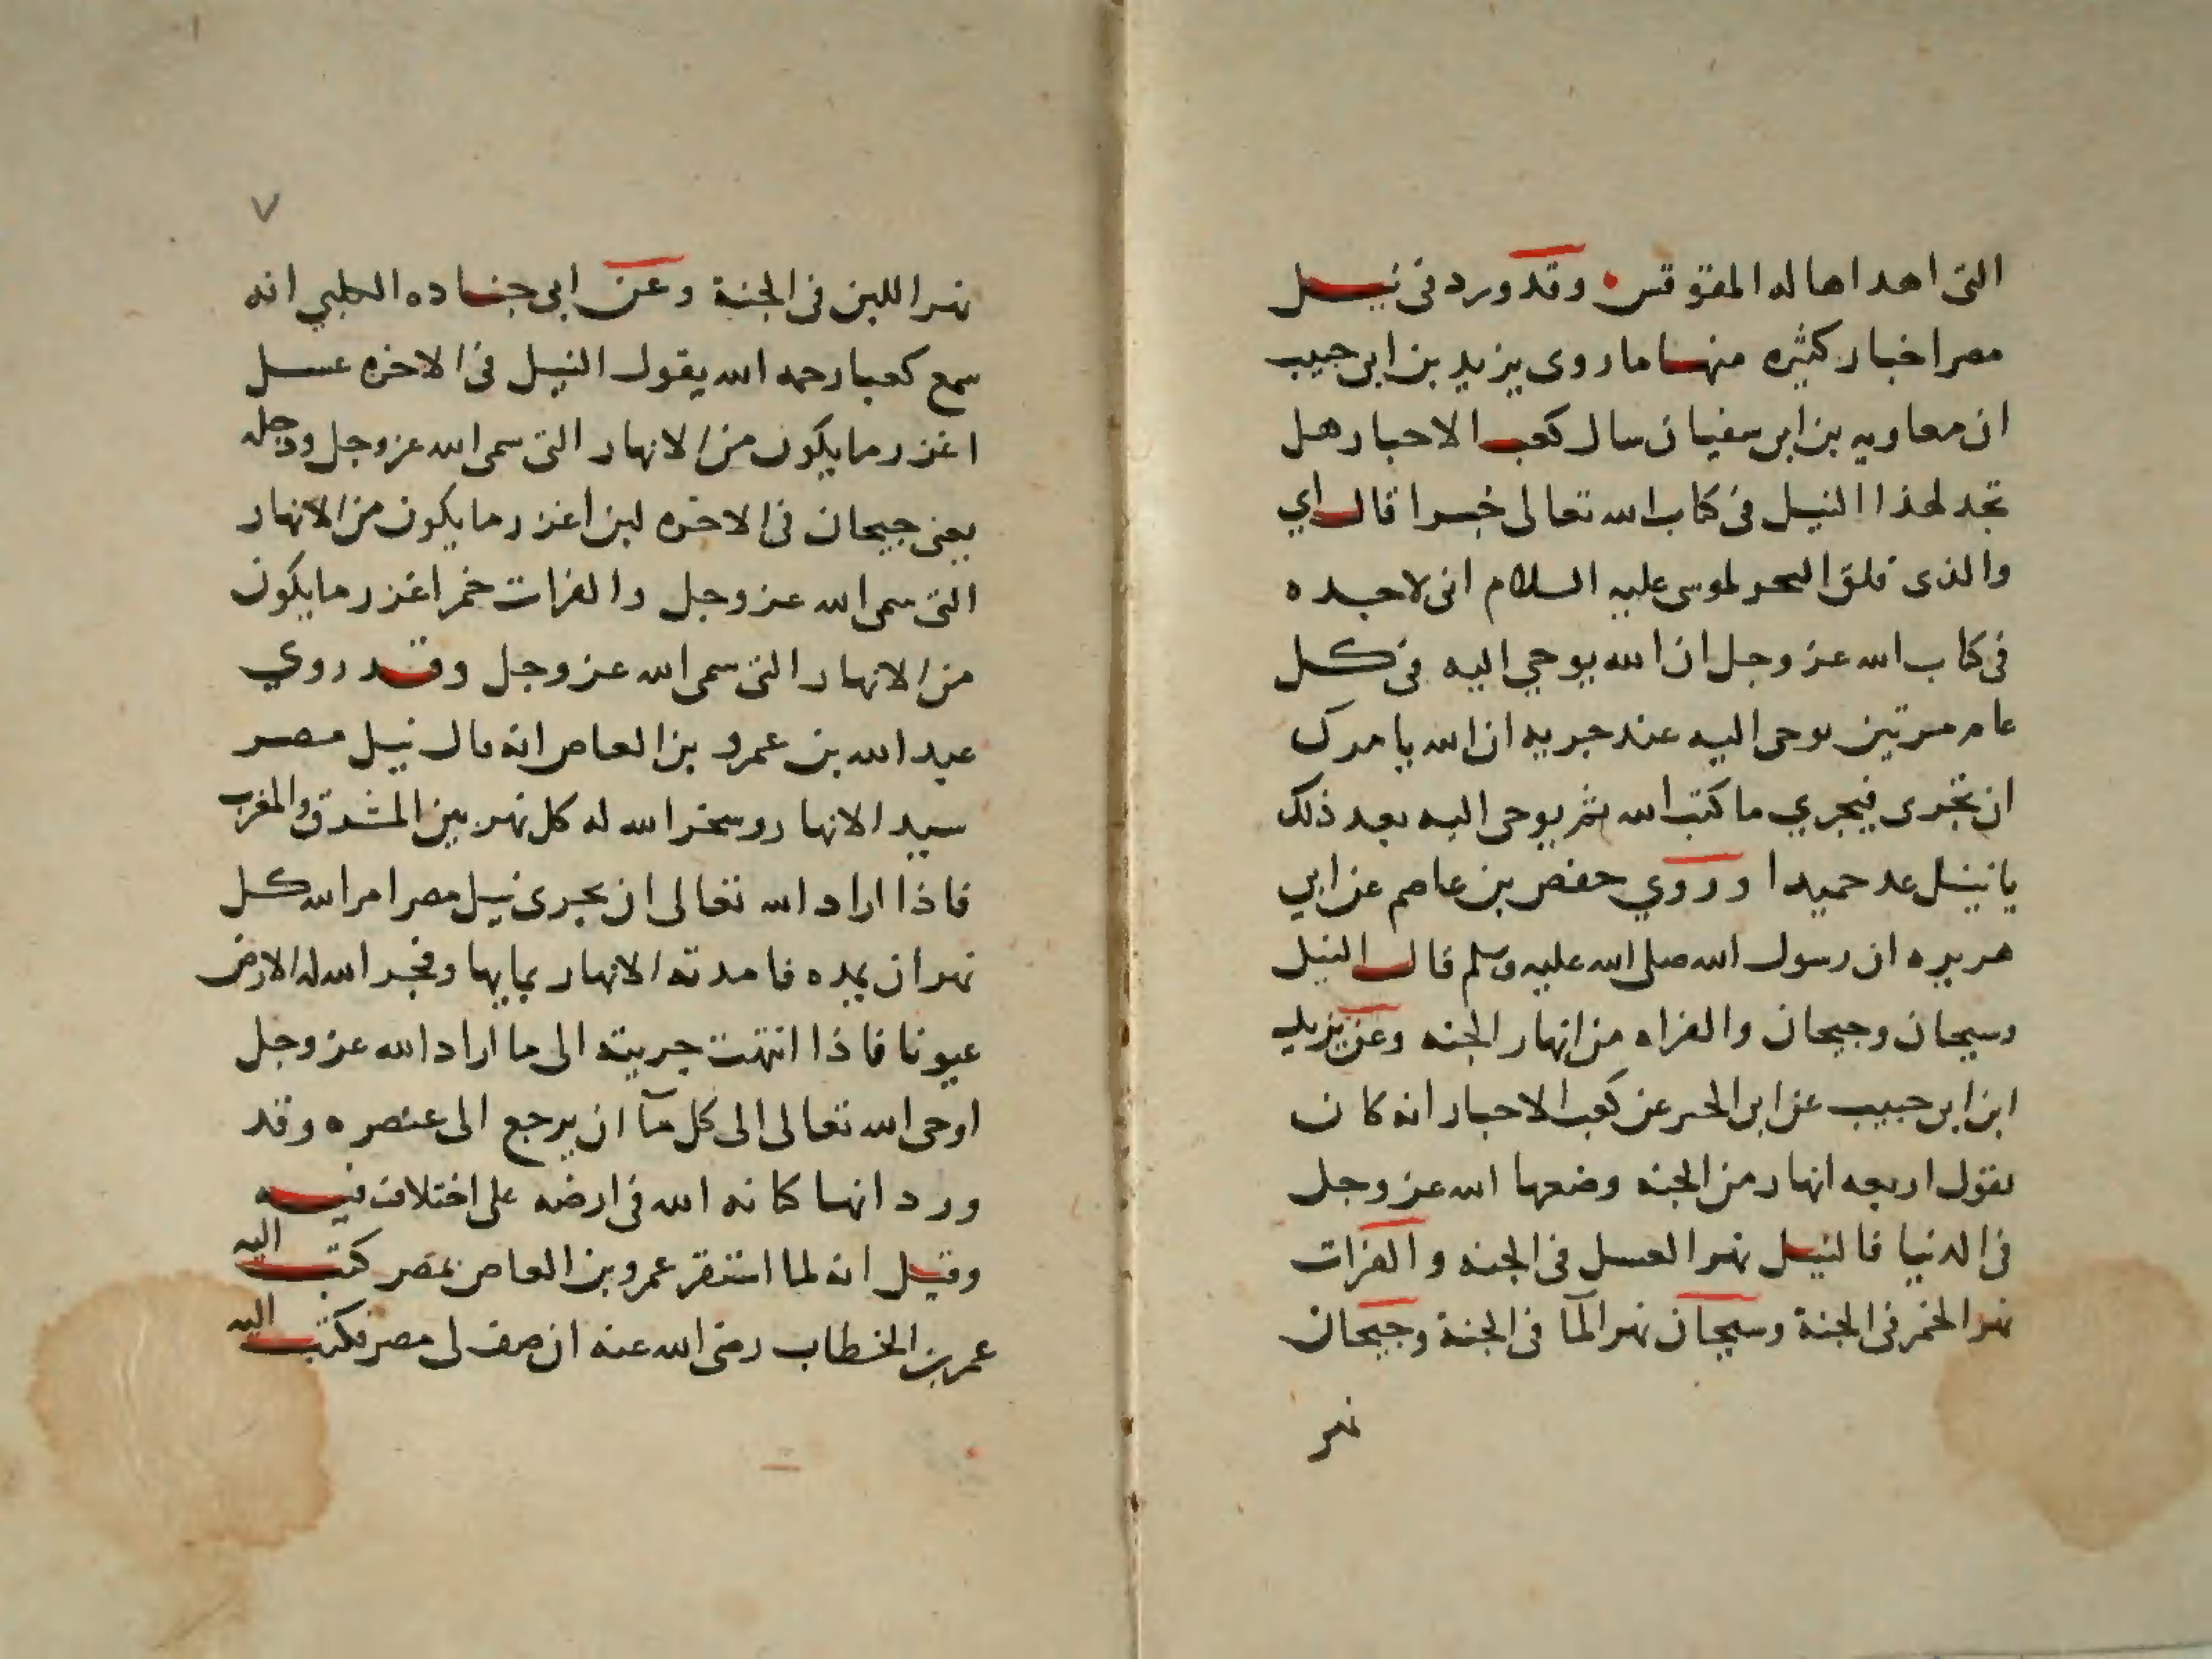 التى اهداها له المقوقس وقد ورد فى نيل
مصر اخبار كثيره منها ما روى يزيد بن ابى حبيب
ان معاويه بن ابى سفيان سال كعب الاحبار هل
تجد لهذا النيل فى كتاب الله تعالى خبرا قال اي
والذى فلق البحر لموسى عليه السلام انى لاجده
فى كتاب الله عز وجل ان الله يوحي اليه فى كل
عام مرتين يوحى اليه عند جريه ان الله يامرك
ان تجرى فيجري ما كتب الله ثم يوحى اليه بعد ذلك
يا نيل عد حميدا وروي حفص بن عاصم عن ابي
هريره ان رسول الله صلى الله عليه وسلم قال النيل
وسيحان وجيحان والفراه من انهار الجنه وعن يزيد
ابن ابى حبيب عن ابى الخير عن كعب الاحبار انه كان
يقول اربعه انهار من الجنه وضعها الله عز وجل
فى الدنيا فالنيل نهر العسل فى الجنه والفرات
نهر الخمر فى الجنة وسيحان نهر المآ فى الجنة وجيحان
نهر
٧
نهر اللبن فى الجنة وعن ابى جناده انه
سمع كعبا رحمه الله يقول النيل فى الاخره عسل
اغزر ما يكون من الانهار التى سمى الله عز وجل ودجله
يعنى جيحان فى الاخره لبن اغزر ما يكون من الانهار
التى سمى الله عز وجل والفرات خمر اغزر ما يكون
من الانهار التى سمى الله عز وجل وقد روي
عبد الله بن عمرو بن العاص انه قال نيل مصر
سيد الانهار وسخر الله له كل نهر بين المشرق والمغرب
فاذا اراد الله تعالى ان يجرى نيل مصر امر الله كل
نهر ان يمده فامدته الانهار بمايها وفجر الله له الارض
عيونا فاذا انتهت جريته الى ما اراد الله عز وجل
اوحى الله تعالى الى كل مآ ان يرجع الى عنصره وقد
ورد انها كنانه الله فى ارضه على اختلاف فيه
وقيل انه لما استقر عمرو بن العاص بمصر كتب اليه
عمر بن الخطاب رضى الله عنه ان صف لى مصر فكتب اليه